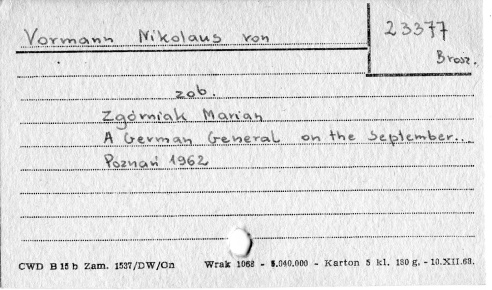 Vormann Nikolaus von
23377
Brosz.
zob.
Zgórniak Marian
A German General on the September..
Poznań 1962
CWD B 15 b Zam. 1537/DW/On Wrak 1068 - 5.040.000 - Karton 5 kl. 180 g. - 10.XII.68.